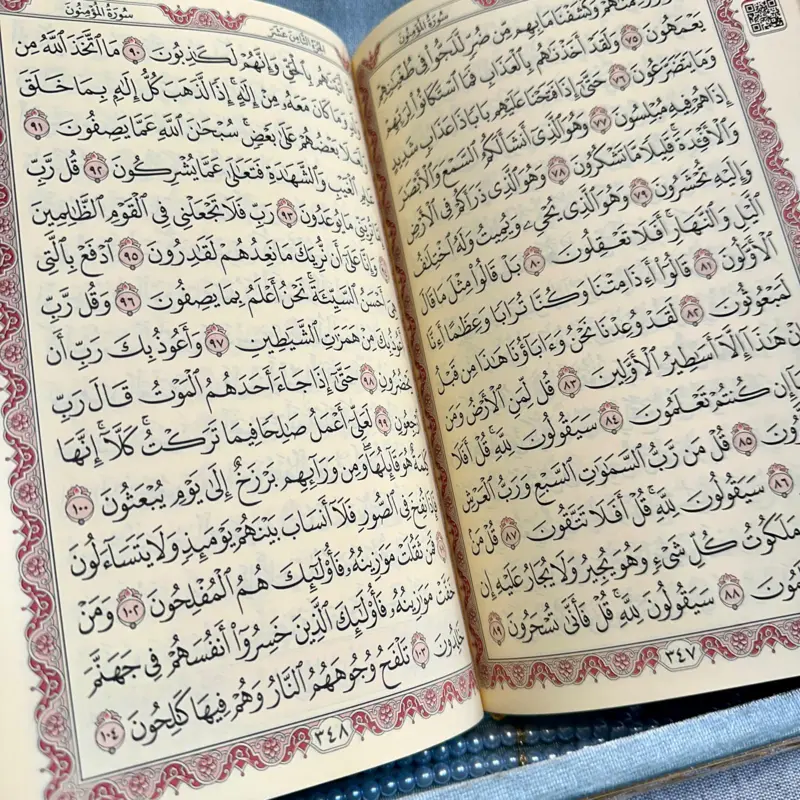 سُورَةُ المُؤْمِنُونَ
رَحِمْنَاهُمْ وَكَشَفْنَا مَا بِهِم مِّن ضُرٍّ لَّلَجُّوا۟ فِي طُغْيَٰنِهِمْ
يَعْمَهُونَ ٧٥ وَلَقَدْ أَخَذْنَٰهُم بِٱلْعَذَابِ فَمَا ٱسْتَكَانُوا۟ لِرَبِّهِمْ
وَمَا يَتَضَرَّعُونَ ٧٦ حَتَّىٰٓ إِذَا فَتَحْنَا عَلَيْهِم بَابًا ذَا عَذَابٍ شَدِيدٍ
إِذَا هُمْ فِيهِ مُبْلِسُونَ ٧٧ وَهُوَ ٱلَّذِىٓ أَنشَأَ لَكُمُ ٱلسَّمْعَ وَٱلْأَبْصَٰرَ
وَٱلْأَفْـِٔدَةَ ۚ قَلِيلًا مَّا تَشْكُرُونَ ٧٨ وَهُوَ ٱلَّذِى ذَرَأَكُمْ فِى ٱلْأَرْضِ
وَإِلَيْهِ تُحْشَرُونَ ٧٩ وَهُوَ ٱلَّذِى يُحْىِۦ وَيُمِيتُ وَلَهُ ٱخْتِلَٰفُ
ٱلَّيْلِ وَٱلنَّهَارِ ۚ أَفَلَا تَعْقِلُونَ ٨٠ بَلْ قَالُوا۟ مِثْلَ مَا قَالَ
ٱلْأَوَّلُونَ ٨١ قَالُوٓا۟ أَءِذَا مِتْنَا وَكُنَّا تُرَابًا وَعِظَٰمًا أَءِنَّا
لَمَبْعُوثُونَ ٨٢ لَقَدْ وُعِدْنَا نَحْنُ وَءَابَآؤُنَا هَٰذَا مِن قَبْلُ
إِنْ هَٰذَآ إِلَّآ أَسَٰطِيرُ ٱلْأَوَّلِينَ ٨٣ قُل لِّمَنِ ٱلْأَرْضُ وَمَن
إِن كُنتُمْ تَعْلَمُونَ ٨٤ سَيَقُولُونَ لِلَّهِ ۚ قُلْ أَفَلَا
٨٥ قُلْ مَن رَّبُّ ٱلسَّمَٰوَٰتِ ٱلسَّبْعِ وَرَبُّ ٱلْعَرْشِ
٨٦ سَيَقُولُونَ لِلَّهِ ۚ قُلْ أَفَلَا تَتَّقُونَ ٨٧ قُلْ مَنۢ
مَلَكُوتُ كُلِّ شَىْءٍ وَهُوَ يُجِيرُ وَلَا يُجَارُ عَلَيْهِ إِن
٨٨ سَيَقُولُونَ لِلَّهِ ۚ قُلْ فَأَنَّىٰ تُسْحَرُونَ ٨٩
٣٤٧
الجُزْءُ الثَّامِنَ عَشَرَ
سُورَةُ المُؤْمِنُونَ
بِٱلْحَقِّ وَإِنَّهُمْ لَكَٰذِبُونَ ٩٠ مَا ٱتَّخَذَ ٱللَّهُ مِن
وَمَا كَانَ مَعَهُۥ مِنْ إِلَٰهٍ ۚ إِذًا لَّذَهَبَ كُلُّ إِلَٰهٍۭ بِمَا خَلَقَ
وَلَعَلَا بَعْضُهُمْ عَلَىٰ بَعْضٍ ۚ سُبْحَٰنَ ٱللَّهِ عَمَّا يَصِفُونَ ٩١
عَٰلِمِ ٱلْغَيْبِ وَٱلشَّهَٰدَةِ فَتَعَٰلَىٰ عَمَّا يُشْرِكُونَ ٩٢ قُل رَّبِّ
تُرِيَنِّى مَا يُوعَدُونَ ٩٣ رَبِّ فَلَا تَجْعَلْنِى فِى ٱلْقَوْمِ ٱلظَّٰلِمِينَ
وَإِنَّا عَلَىٰٓ أَن نُّرِيَكَ مَا نَعِدُهُمْ لَقَٰدِرُونَ ٩٥ ٱدْفَعْ بِٱلَّتِى
هِىَ أَحْسَنُ ٱلسَّيِّئَةَ ۚ نَحْنُ أَعْلَمُ بِمَا يَصِفُونَ ٩٦ وَقُل رَّبِّ
أَعُوذُ بِكَ مِنْ هَمَزَٰتِ ٱلشَّيَٰطِينِ ٩٧ وَأَعُوذُ بِكَ رَبِّ أَن
يَحْضُرُونِ ٩٨ حَتَّىٰٓ إِذَا جَآءَ أَحَدَهُمُ ٱلْمَوْتُ قَالَ رَبِّ
ٱرْجِعُونِ ٩٩ لَعَلِّىٓ أَعْمَلُ صَٰلِحًا فِيمَا تَرَكْتُ ۚ كَلَّآ ۚ إِنَّهَا
كَلِمَةٌ هُوَ قَآئِلُهَا ۖ وَمِن وَرَآئِهِم بَرْزَخٌ إِلَىٰ يَوْمِ يُبْعَثُونَ ١٠٠
فَإِذَا نُفِخَ فِى ٱلصُّورِ فَلَآ أَنسَابَ بَيْنَهُمْ يَوْمَئِذٍ وَلَا يَتَسَآءَلُونَ
فَمَن ثَقُلَتْ مَوَٰزِينُهُۥ فَأُو۟لَٰٓئِكَ هُمُ ٱلْمُفْلِحُونَ ١٠٢ وَمَنْ
خَفَّتْ مَوَٰزِينُهُۥ فَأُو۟لَٰٓئِكَ ٱلَّذِينَ خَسِرُوٓا۟ أَنفُسَهُمْ فِى جَهَنَّمَ
خَٰلِدُونَ ١٠٣ تَلْفَحُ وُجُوهَهُمُ ٱلنَّارُ وَهُمْ فِيهَا كَٰلِحُونَ ١٠٤
٣٤٨